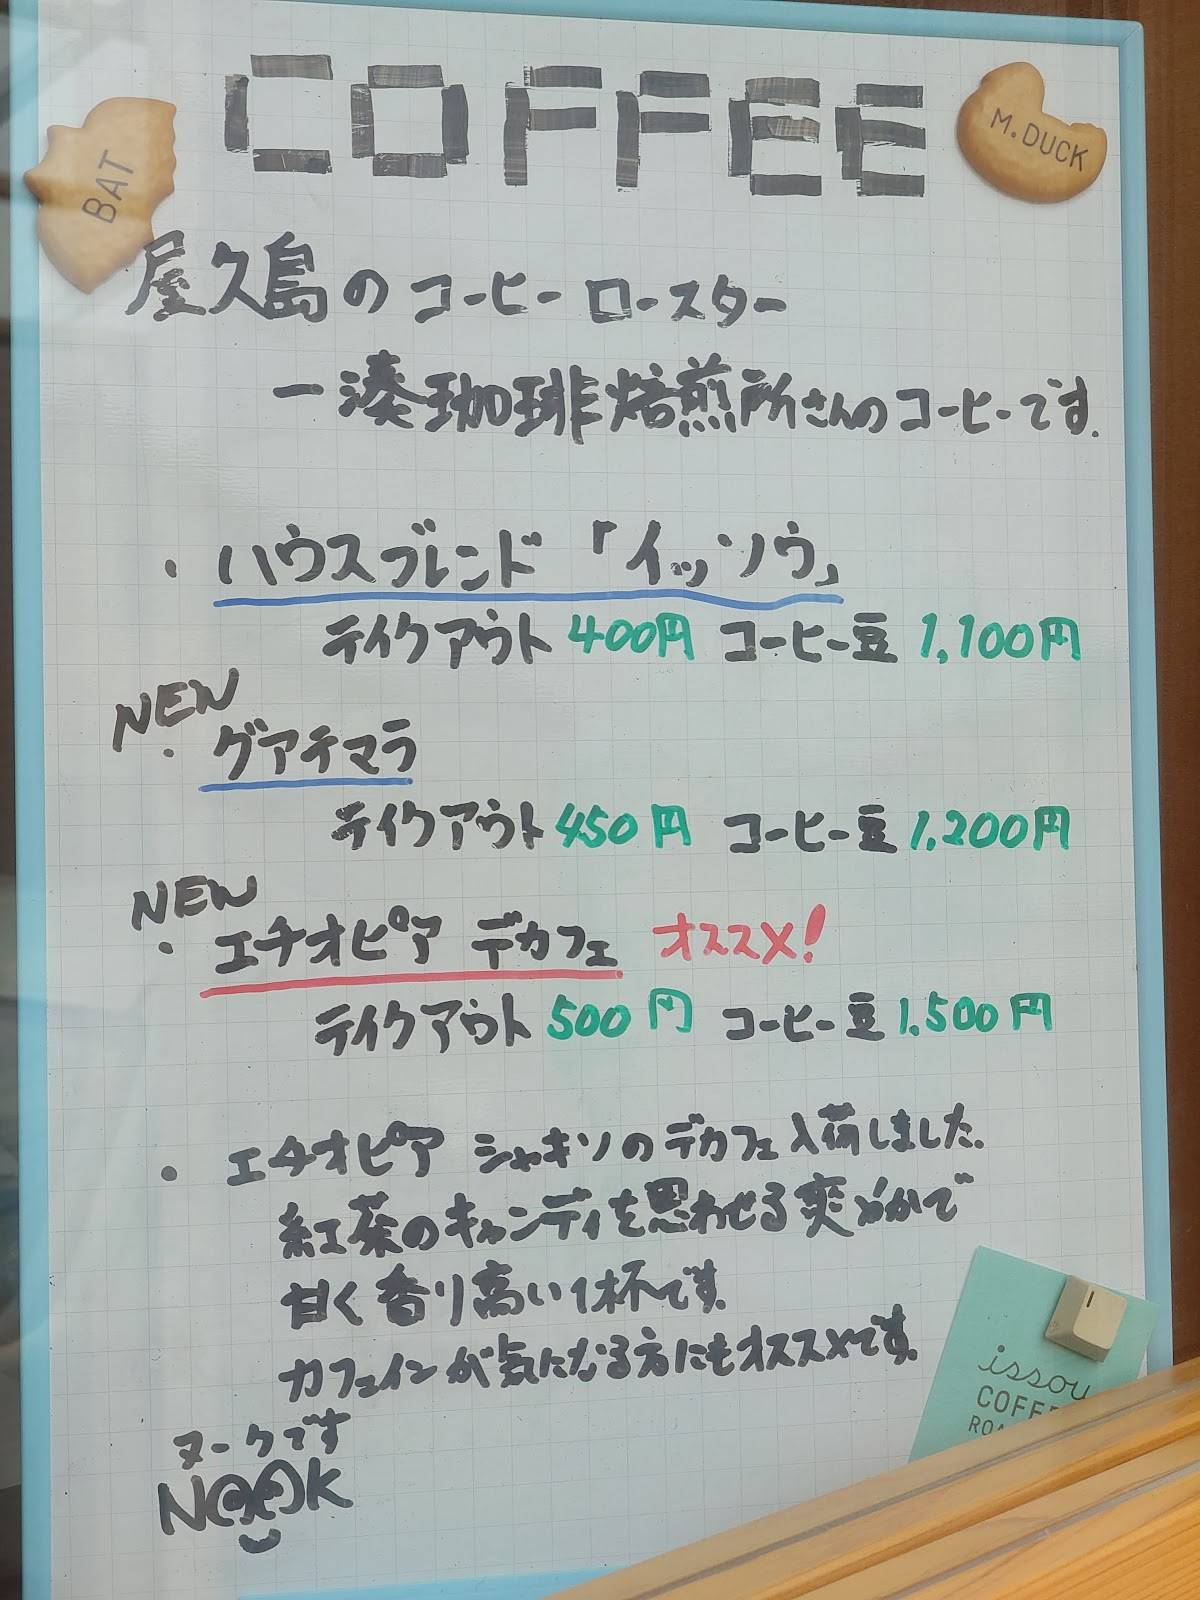 COFFEE
BAT
M.DUCK
屋久島のコーヒーロースター
一湊珈琲焙煎所さんのコーヒーです.
・ハウスブレンド「イッソウ」
テイクアウト 400円 コーヒー豆 1,100円
NEW
・グアテマラ
テイクアウト 450円 コーヒー豆 1,200円
NEW
・エチオピア デカフェ オススメ!
テイクアウト 500円 コーヒー豆 1,500円
・エチオピア シャキソのデカフェ入荷しました.
紅茶のキャンディを思わせる爽やかで
甘く香り高い1杯です.
カフェインが気になる方にもオススメです.
ヌークです
NOOK
issou
COFFE
ROA